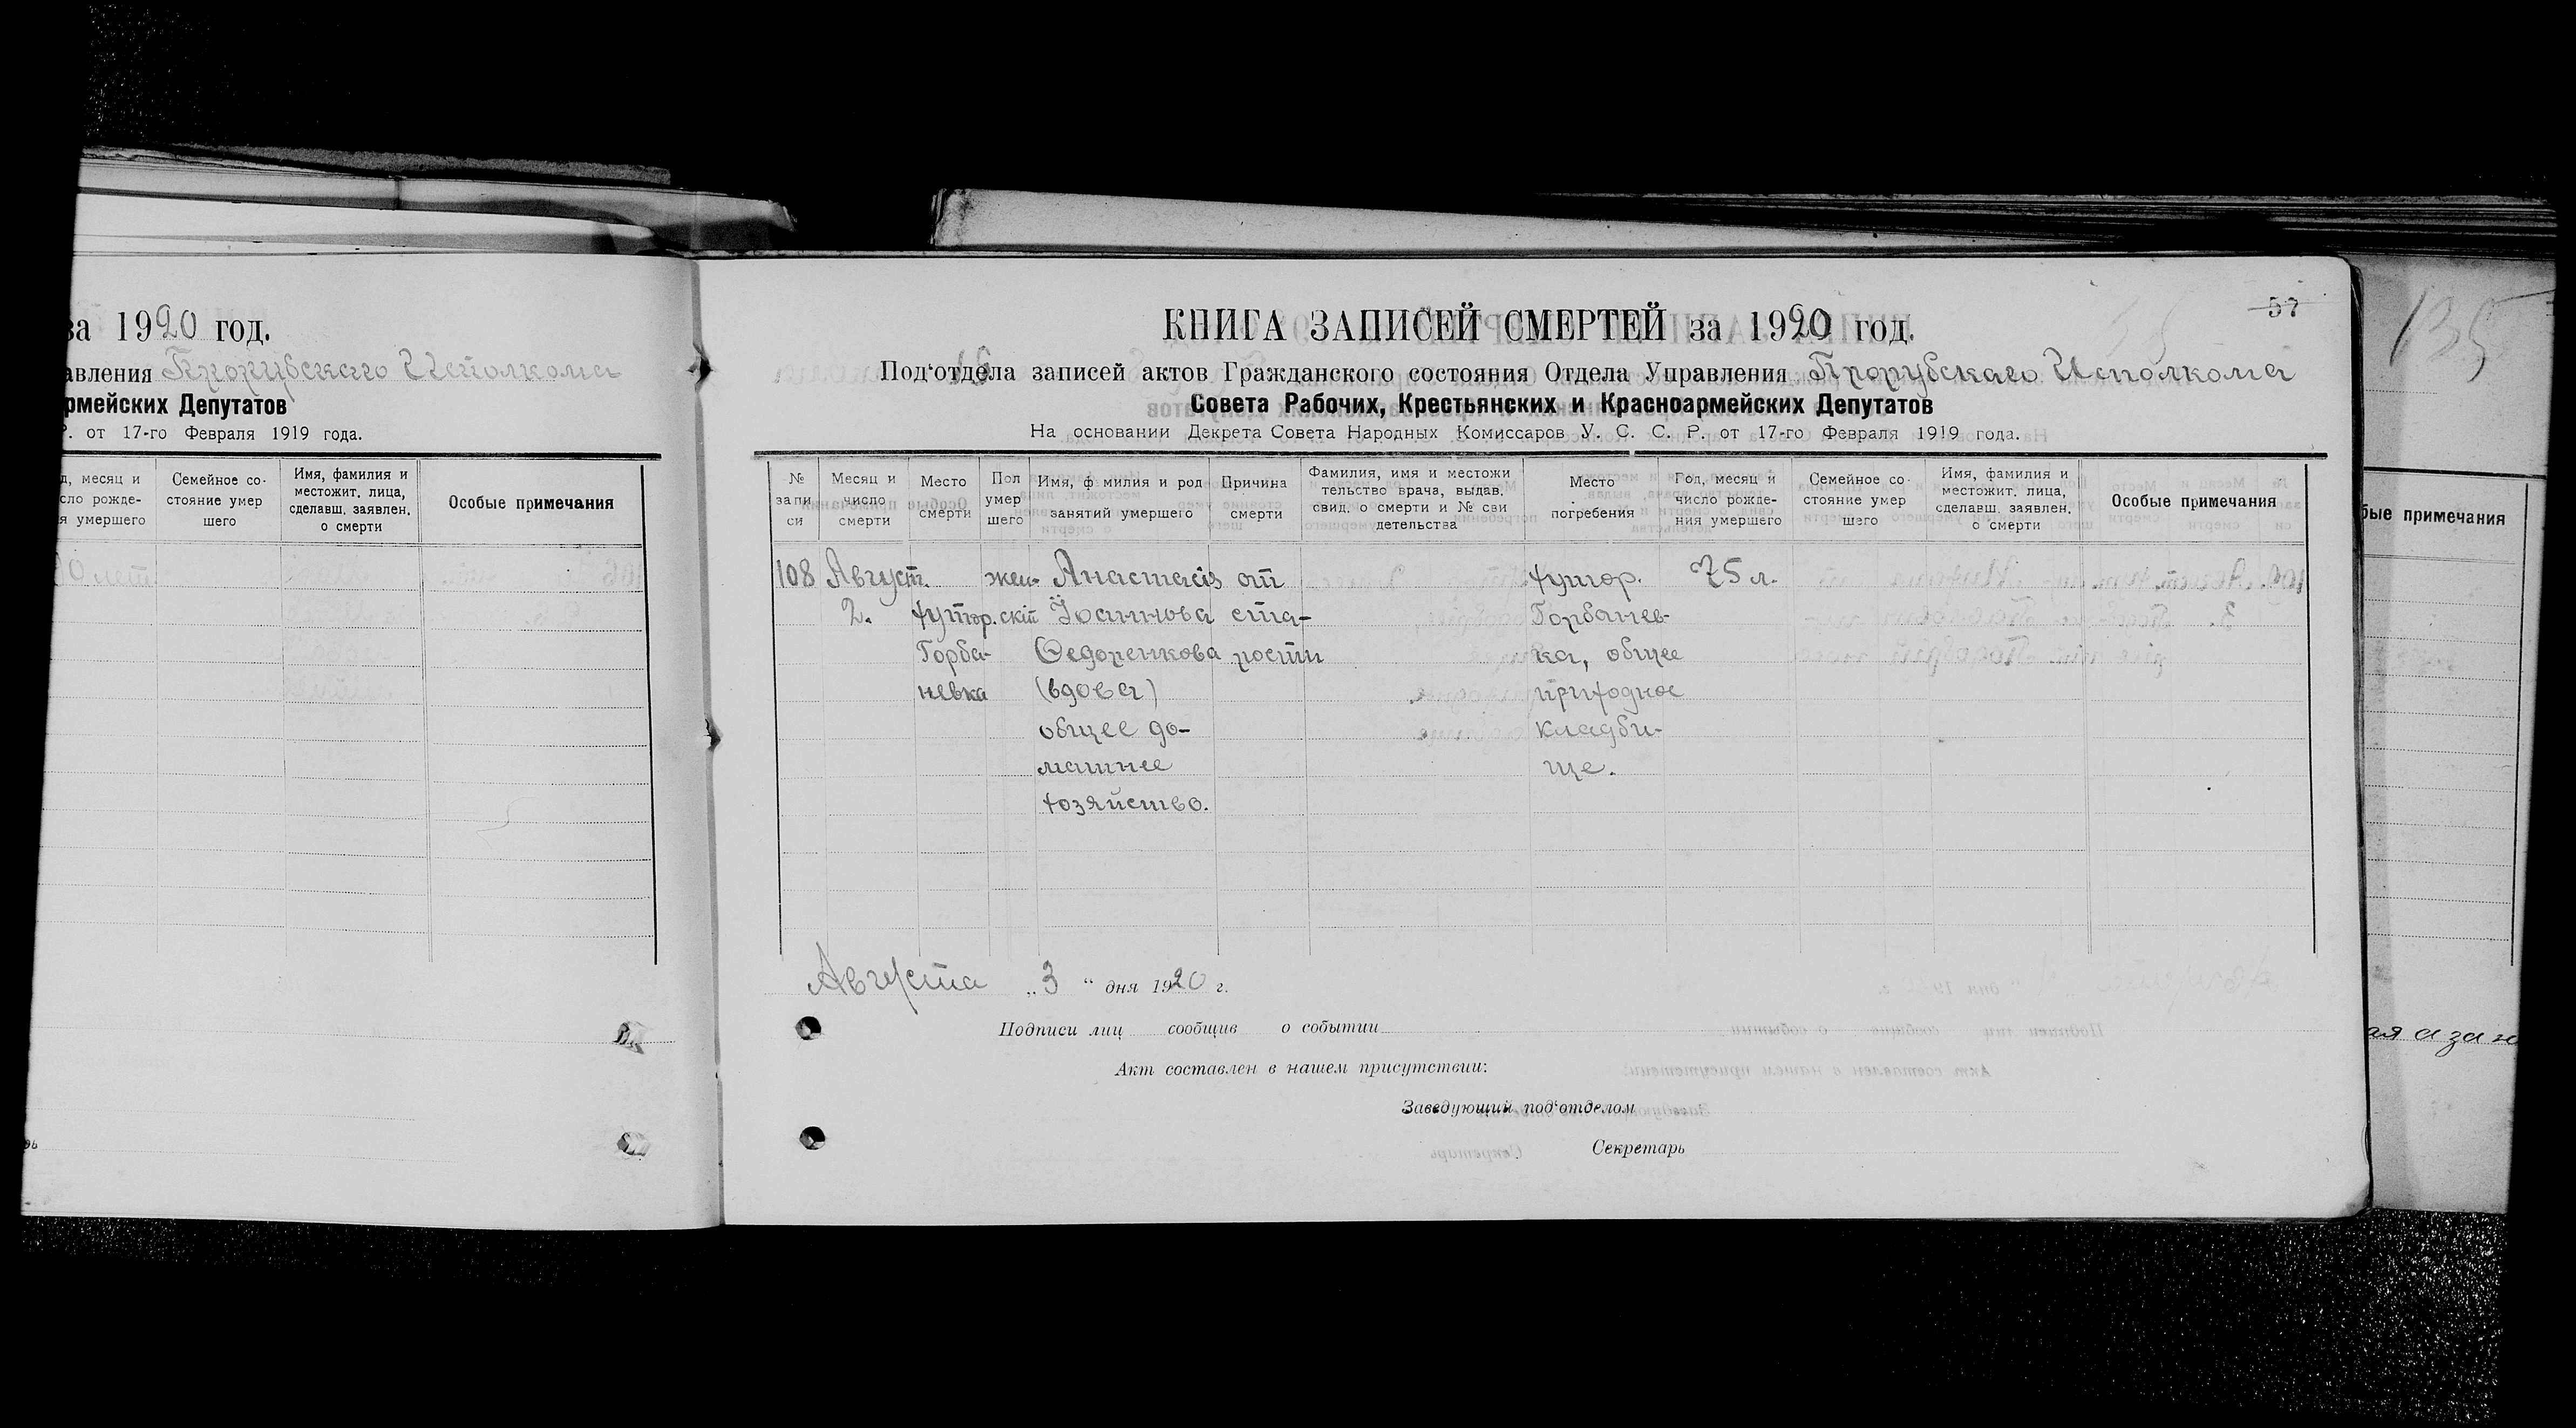 за 1920 год.
авления Прорубскаго Исполкома
рмейских Депутатов
Р. от 17-го Февраля 1919 года.
д, месяц и
сло рожде-
я умершего
Семейное со-
стояние умер
шего
Имя, фамилия и
местожит. лица,
сделавш. заявлен.
о смерти
Особые примечания
0 лет
57
КНИГА ЗАПИСЕЙ СМЕРТЕЙ за 1920 год.
Под‘отдела записей актов Гражданского состояния Отдела Управления Прорубскаго Исполкома
Совета Рабочих, Крестьянских и Красноармейских Депутатов
На основании Декрета Совета Народных Комиссаров У. С. С. Р. от 17-го Февраля 1919 года.
№
запи
си
Месяц и
число
смерти
Место
смерти
Пол
умер
шего
Имя, ф милия и род
занятий умершего
Причина
смерти
Фамилия, имя и местожи
тельство врача, выдав.
свид. о смерти и № сви
детельства
Место
погребения
Год, месяц и
число рожде-
ния умершего
Семейное со
стояние умер
шего
Имя, фамилия и
местожит. лица,
сделавш. заявлен.
о смерти
Особые примечания
108 Август. жен- Анастасія от хутор. 75 л.
2. хутор. скій Іоаннова ста- Горбанев-
Горба- Ѳедоренкова рости ка, общее
невка (вдова) приходное
общее до- кладби-
машнее ще.
хозяйство.
Августа „3“ дня 1920 г.
Подписи лиц сообщив о событии
Акт составлен в нашем присутствии:
Заведующий под‘отделом
Секретарь
135
бые примечания
ая а за н